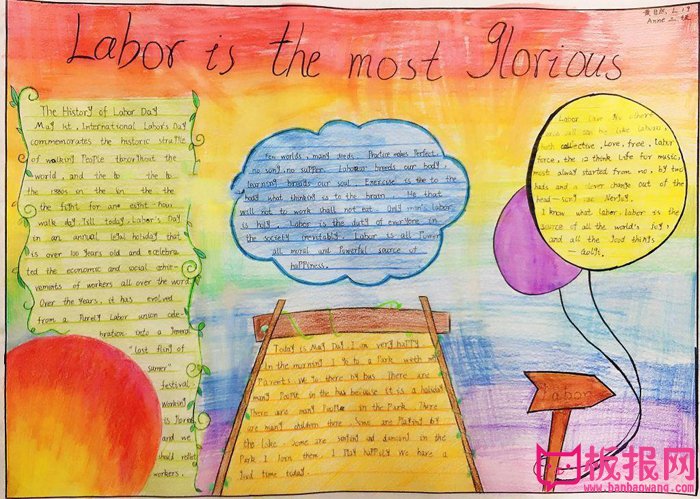 Anne
Labor is the most glorious
The History of Labor Day
May 1st, International Labor's Day
commemorates the historic struggle
of walking People throughout the
world, and the to the to
the 1880s in the the the
the fight for an eight-hour
walk day. Till today, Labor's Day
is an annual legal hotiday that
is over 100 years old and celebra
ted the economic and social achie-
vements of workers all over the word
Over the years, it has evolved
from a Purely Labor union cele-
bration into a general
"last fling of
sumer"
festival
working
is
and we
should
workers.
Few worlds, many deeds. Practice makes Perfect.
no sung, no supper. Labour breads our body
learning breads our soul. Exercise is the to the
body what thinking is to the brain. He that
will not to work shall not eat. Only man's labor
is holy. Labor is the duty of everyone in
the society Labor is all Power
all moral and Powerful source of
happiness.
Labor, love
collective, Love, free, labor
force, the 12 think life for music,
most always started from no, by two
out of the
I know what labor: labor is the
source of all the world's joy,
and all the good things
Today is May Day. I am very happy
In the morning I go to a Park with my
Parents we go there by bus There are
many People in the bus because it is a holiday
There are many People in the Park. There
are many children there Some are Playing by
the lake Some are singing and dancing in the
Park. I join them. I Play happily We have a
good time today.
Labor
板报网
www.banbaowang.com